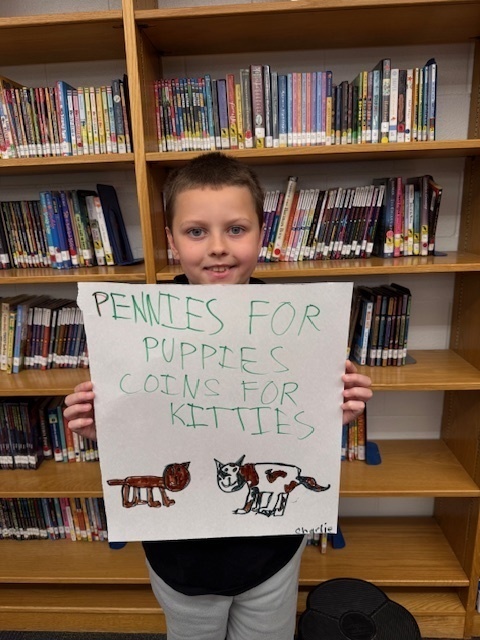 PENNIES FOR
PUPPIES
COINS FOR
KITTIES
charlie